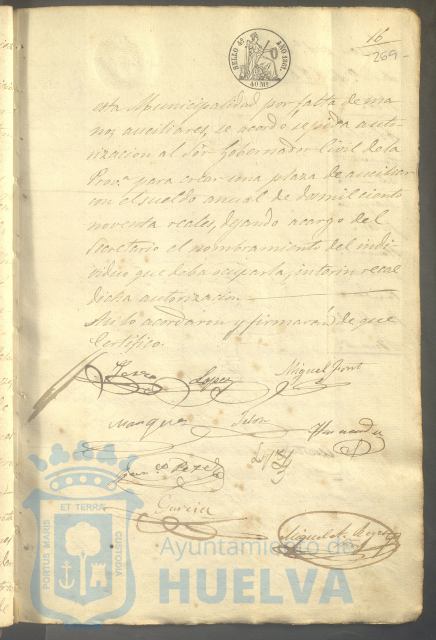 SELLO 4º AÑO 1861.
40 Ms
16
269-
esta Municipalidad, por falta de ma
nos auxiliares, se acordó se pida auto
rizacion al Sor Gobernador Civil de la
Prova para crear una plaza de auxiliar
con el sueldo anual de dos mil ciento
noventa reales, dejando acargo del
Secretario el nombramiento del indi
viduo que deba ocuparla, interin recae
dicha autorizacion.
Asi lo acordaron y firmaran de que
Certifico.
Lopez Miguel
Marquez Hernandez
Garcia
ET TERRA
PORTUS MARIS CUSTODIA
Ayuntamiento de
HUELVA